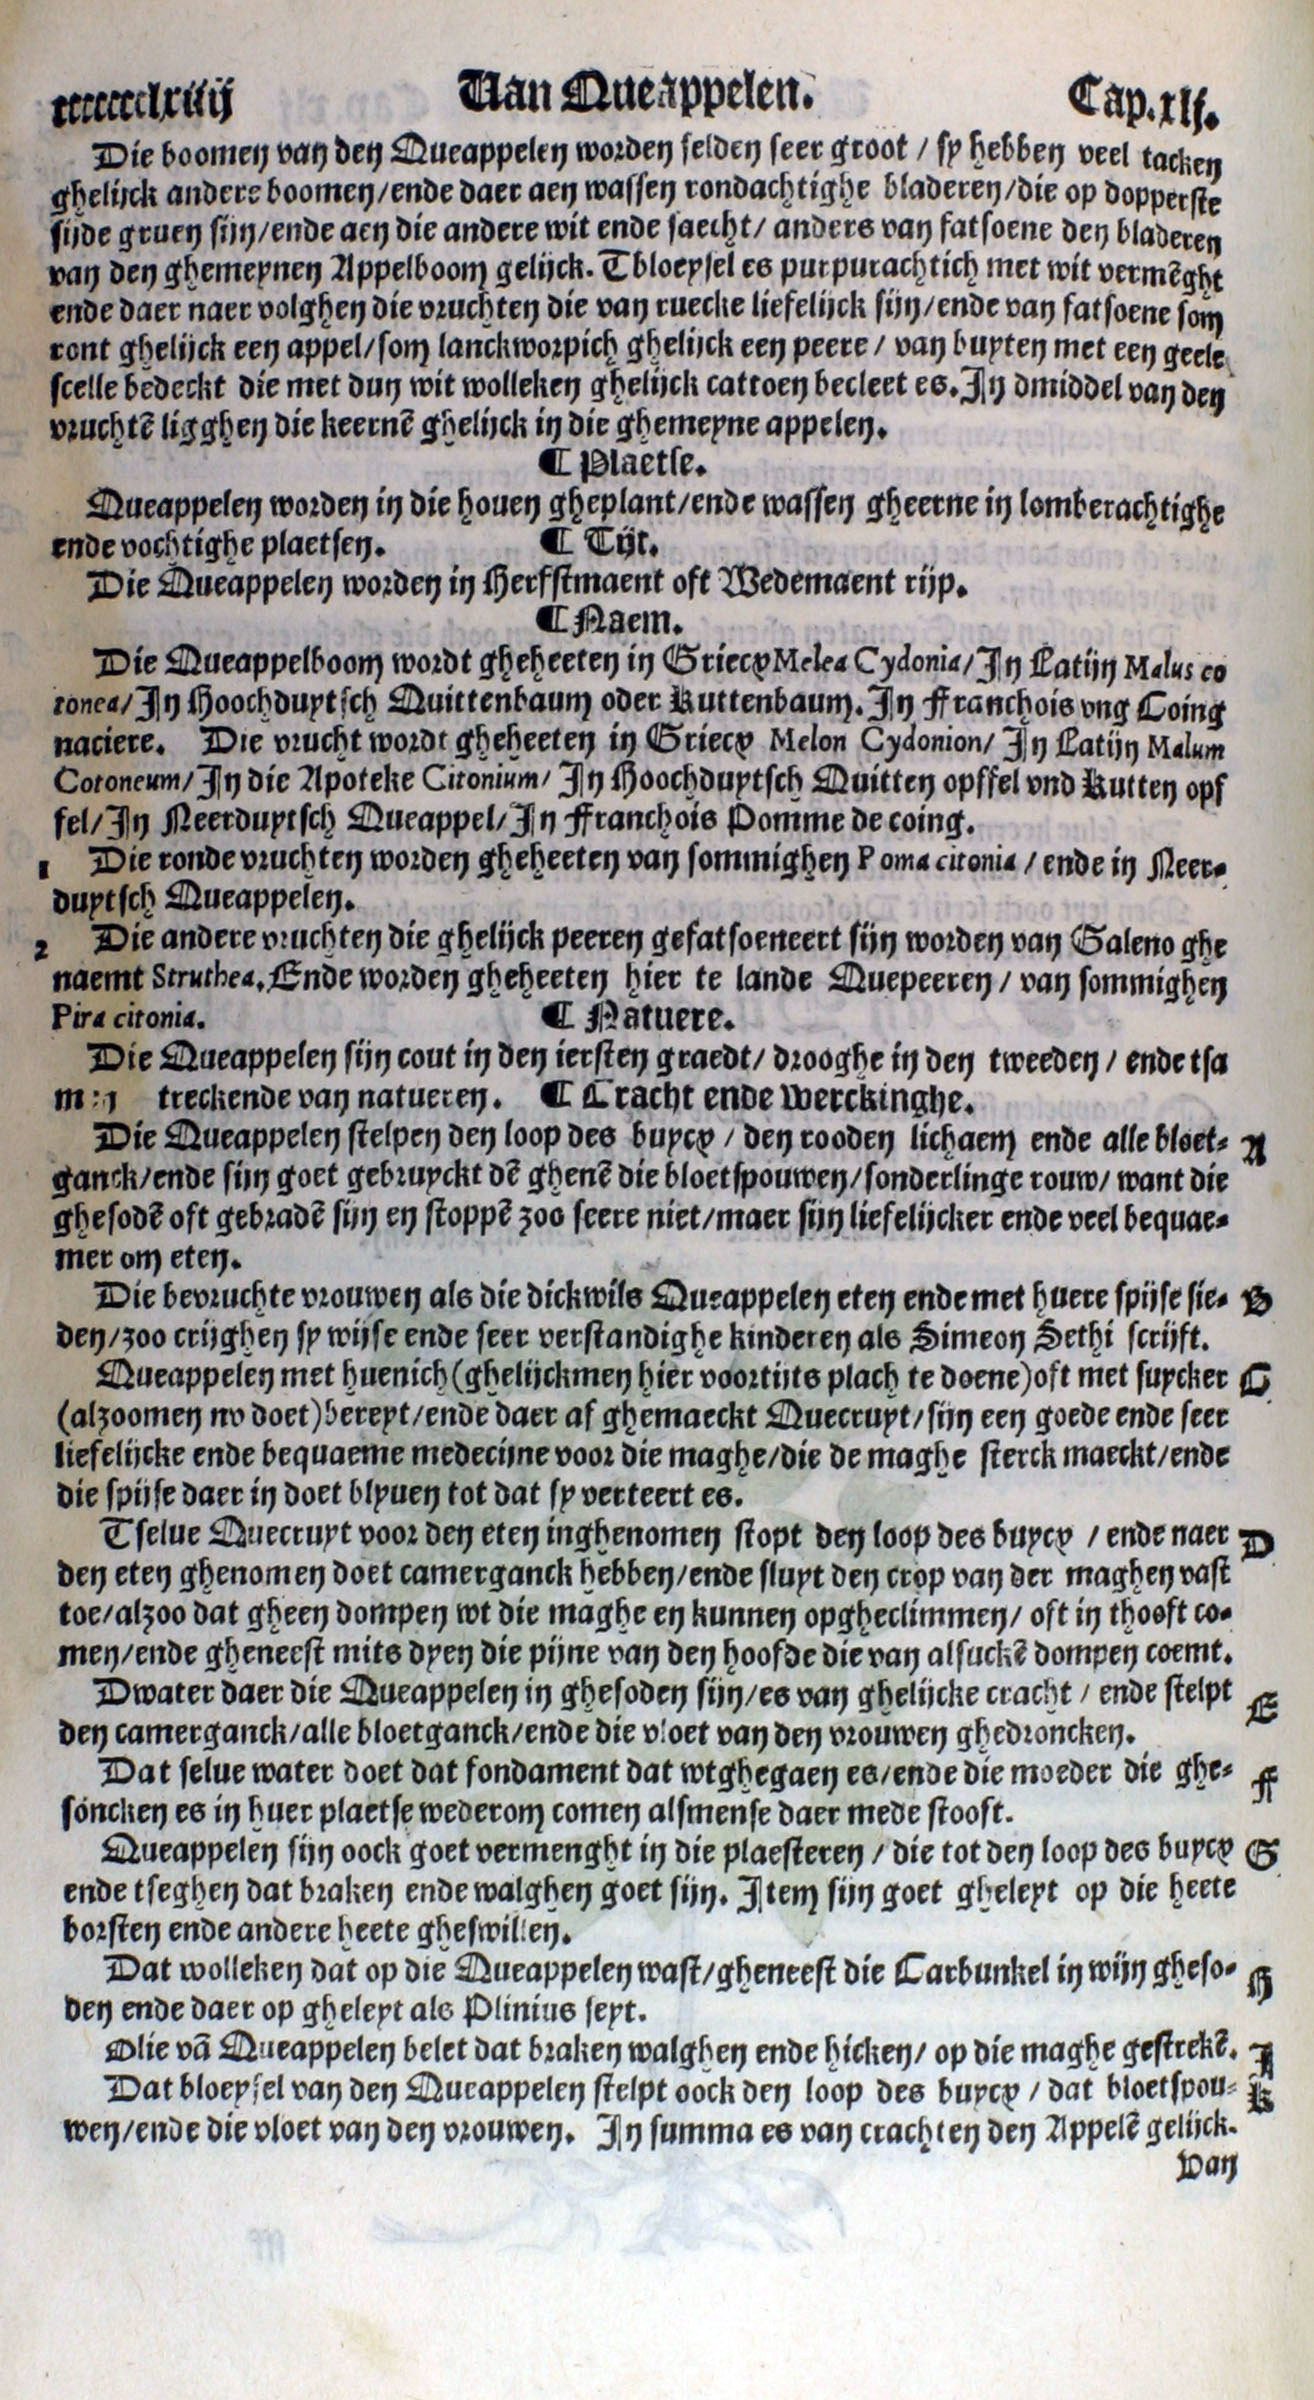 xxxxxxclxiiij Van Queappelen. Cap.xlj.
Die boomen van den Queappelen worden selden seer groot / sy hebben veel tacken
ghelijck andere boomen/ende daer aen wassen rondachtighe bladeren/die op dopperste
sijde gruen sijn/ende aen die andere wit ende saecht/ anders van fatsoene den bladeren
van den ghemeynen Appelboom gelijck. Tbloeysel es purpurachtich met wit vermēght
ende daer naer volghen die vruchten die van ruecke liefelijck sijn/ende van fatsoene som
ront ghelijck een appel/som lanckworpich ghelijck een peere / van buyten met een geele
scelle bedeckt die met dun wit wolleken ghelijck cattoen becleet es. In dmiddel van den
vruchtē ligghen die keernē ghelijck in die ghemeyne appelen.
¶ Plaetse.
Queappelen worden in die houen gheplant/ende wassen gheerne in lomberachtighe
ende vochtighe plaetsen. ¶ Tijt.
Die Queappelen worden in Herfstmaent oft Wedemaent rijp.
¶ Naem.
Die Queappelboom wordt gheheeten in Griecx Melea Cydonia/ In Latijn Malus co
tonea/ In Hoochduytsch Quittenbaum oder Kuttenbaum. In Franchois vng Coing
naciere. Die vrucht wordt gheheeten in Griecx Melon Cydonion/ In Latijn Malum
Cotoneum/ In die Apoteke Citonium/ In Hoochduytsch Quitten opffel vnd Kutten opf
fel/ In Neerduytsch Queappel/ In Franchois Pomme de coing.
1 Die ronde vruchten worden gheheeten van sommighen Poma citonia / ende in Neer-
duytsch Queappelen.
2 Die andere vruchten die ghelijck peeren gefatsoeneert sijn worden van Galeno ghe
naemt Struthea. Ende worden gheheeten hier te lande Quepeeren / van sommighen
Pira citonia. ¶ Natuere.
Die Queappelen sijn cout in den iersten graedt/ drooghe in den tweeden / ende tsa
men treckende van natueren. ¶ Cracht ende Werckinghe.
Die Queappelen stelpen den loop des buycx / den rooden lichaem ende alle bloet- A
ganck/ende sijn goet gebruyckt dē ghenē die bloetspouwen/sonderlinge rouw/ want die
ghesodē oft gebradē sijn en stoppē zoo seere niet/maer sijn liefelijcker ende veel bequae-
mer om eten.
Die bevruchte vrouwen als die dickwils Queappelen eten ende met huere spijse sie- B
den/zoo crijghen sy wijse ende seer verstandighe kinderen als Simeon Sethi scrijft.
Queappelen met huenich (ghelijckmen hier voortijts plach te doene) oft met suycker C
(alzoomen nv doet) bereyt/ende daer af ghemaeckt Quecruyt/sijn een goede ende seer
liefelijcke ende bequaeme medecijne voor die maghe/die de maghe sterck maeckt/ende
die spijse daer in doet blyuen tot dat sy verteert es.
Tselue Quecruyt voor den eten inghenomen stopt den loop des buycx / ende naer D
den eten ghenomen doet camerganck hebben/ende sluyt den crop van der maghen vast
toe/alzoo dat gheen dompen wt die maghe en kunnen opgheclimmen/ oft in thooft co-
men/ende gheneest mits dyen die pijne van den hoofde die van alsuckē dompen coemt.
Dwater daer die Queappelen in ghesoden sijn/es van ghelijcke cracht / ende stelpt E
den camerganck/alle bloetganck/ende die vloet van den vrouwen ghedroncken.
Dat selue water doet dat fondament dat wtghegaen es/ende die moeder die ghe- F
soncken es in huer plaetse wederom comen alsmense daer mede stooft.
Queappelen sijn oock goet vermenght in die plaesteren / die tot den loop des buycx G
ende tseghen dat braken ende walghen goet sijn. Item sijn goet gheleyt op die heete
borsten ende andere heete gheswillen.
Dat wolleken dat op die Queappelen wast/gheneest die Carbunkel in wijn gheso- H
den ende daer op gheleyt als Plinius seyt.
Olie vā Queappelen belet dat braken walghen ende hicken/ op die maghe gestrekē. I
Dat bloeysel van den Queappelen stelpt oock den loop des buycx / dat bloetspou- K
wen/ende die vloet van den vrouwen. In summa es van crachten den Appelē gelijck.
Van